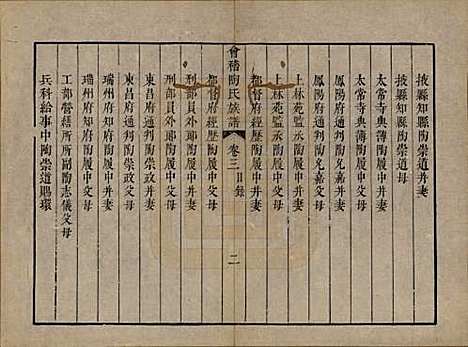 掖縣知縣陶崇道母
掖縣知縣陶崇道并妻
太常寺典薄陶履中母
太常寺典薄陶履中并妻
鳳陽府通判陶允嘉父母
鳳陽府通判陶允嘉并妻
上林苑監丞陶履中父母
上林苑監丞陶履中并妻
都督府經歷陶履中并妻
會稽陶氏族譜
卷三 目錄
二
都督府經歷陶履中父母
刑部員外郎陶履中并妻
刑部員外郎陶履中父母
東昌府通判陶崇政并妻
東昌府通判陶崇政父母
瑞州府知府陶履中并妻
瑞州府知府陶履中父母
工部督繕所所副陶志儀父母
兵科給事中陶崇道賜環